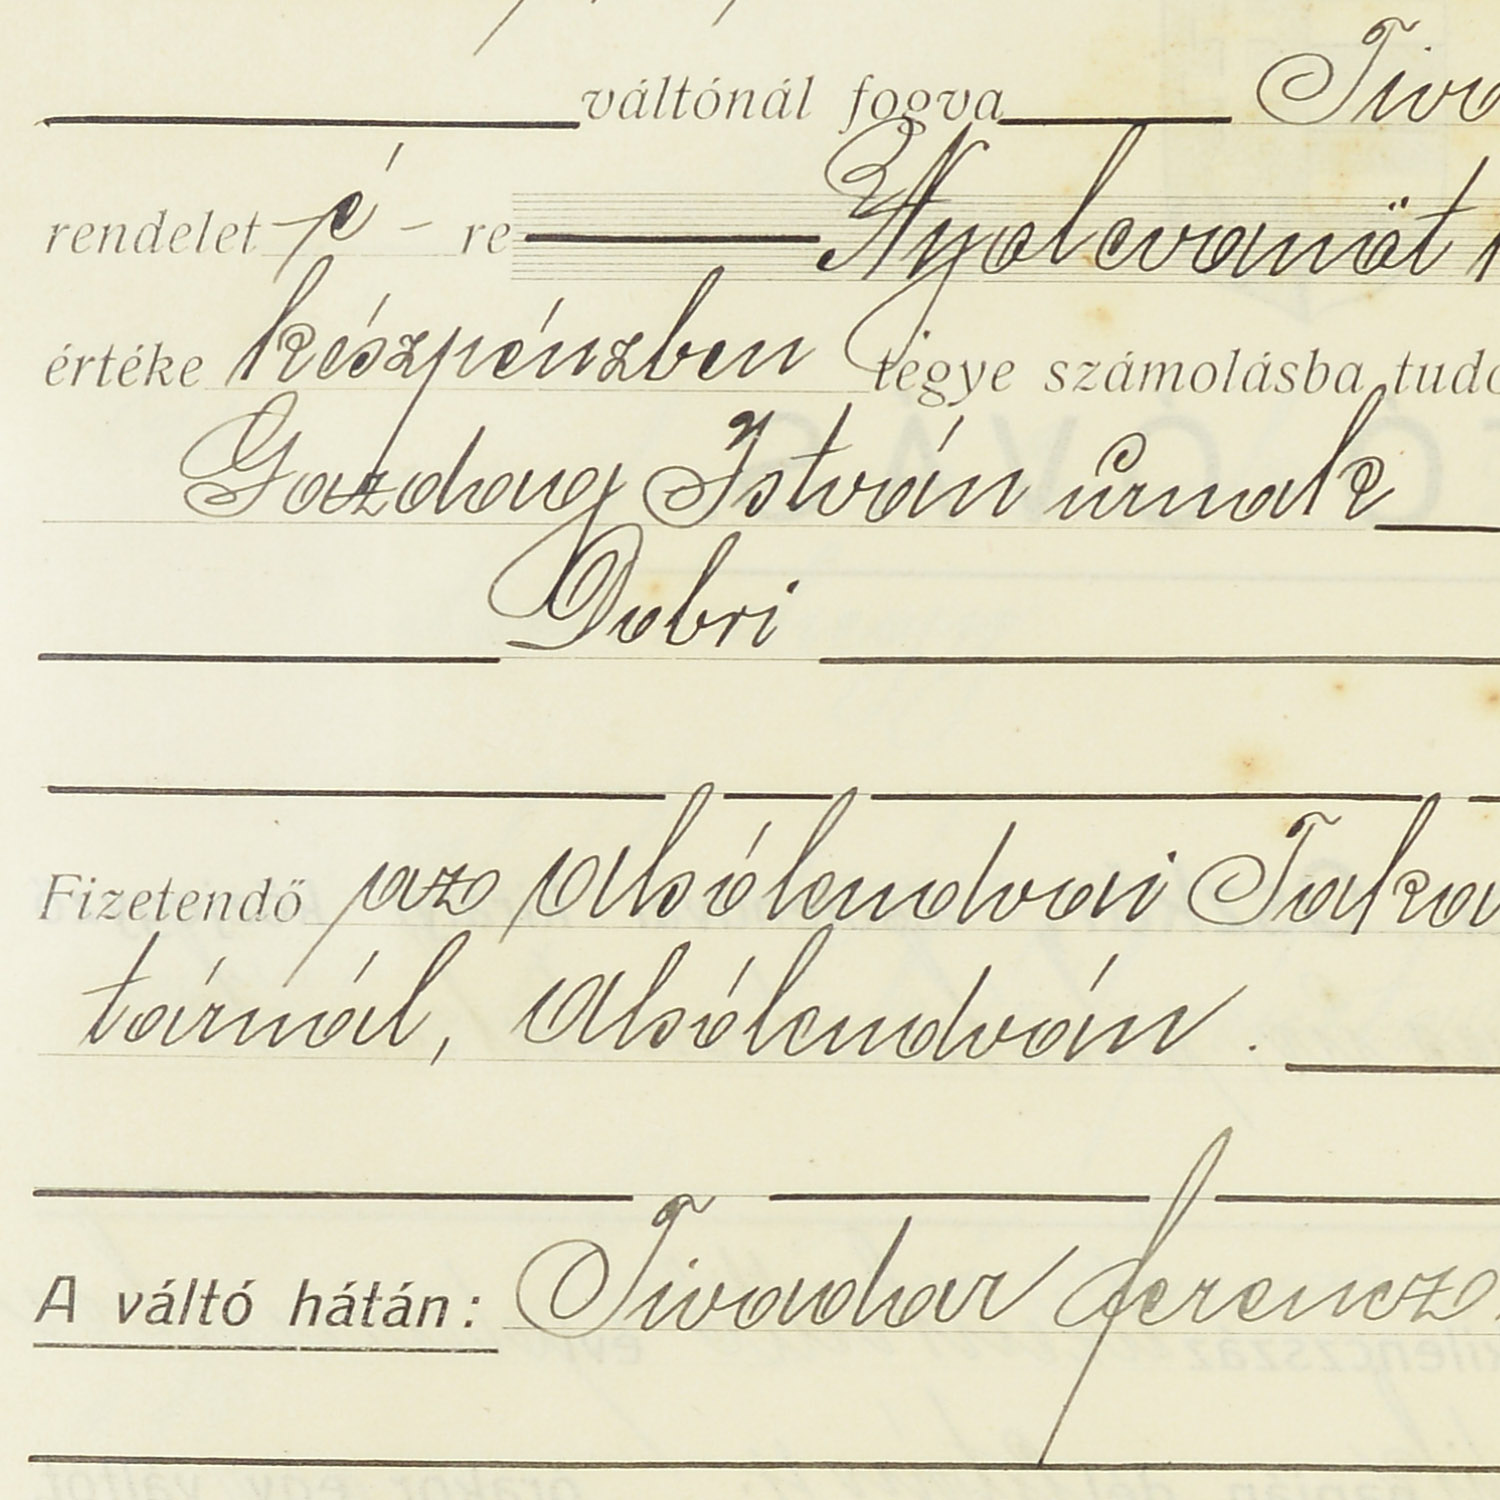 váltónál fogva
rendelet é - re Nyolcvanöt
értéke készpénzben tégye számolásba
Gazdag István úrnak
Dobri
Fizetendő az Alsólendvai
tárnál, Alsólendván.
A váltó hátán: Tivadar Ferencz